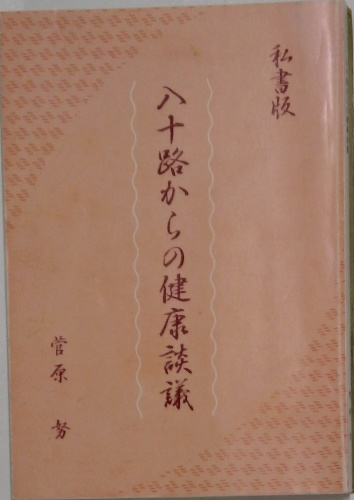 私書版
八十路からの健康談議
菅原 努